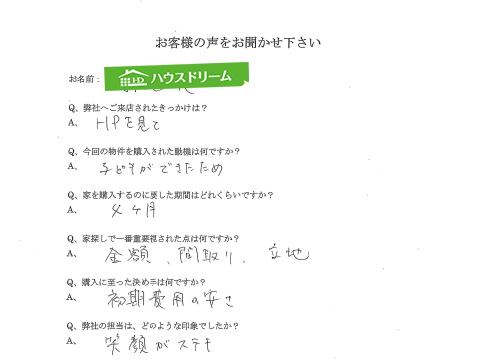 お客様の声をお聞かせ下さい
お名前：
ハウスドリーム
Q、弊社へご来店されたきっかけは？
A、 HPを見て
Q、今回の物件を購入された動機は何ですか？
A、 子どもができたため
Q、家を購入するのに要した期間はどれくらいですか？
A、 4ヶ月
Q、家探しで一番重要視された点は何ですか？
A、 金額、間取り、立地
Q、購入に至った決め手は何ですか？
A、 初期費用の安さ
Q、弊社の担当は、どのような印象でしたか？
A、 笑顔がステキ